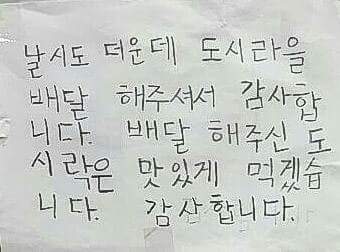 날시도 더운데 도시라을
배달 해주셔서 감사합
니다. 배달 해주신 도
시락은 맛있게 먹겠습
니다. 감삽합니다.